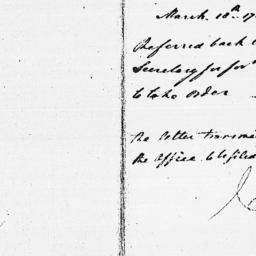 March. 18th. 17
Referred back t
Secretary for for
to take order
The Letter transmi
the Office to be filed